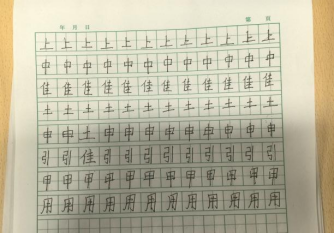 年 月 日 第 页
上 上 上 上 上 上 上 上 上 上 上 上
中 中 中 中 中 中 中 中 中 中 中 中
佳 佳 佳 佳 佳 佳 佳 佳 佳 佳 佳 佳
土 土 土 土 土 土 土 土 土 土 土 土
申 申 土 申 申 申 申 申 申 申 申 申
引 引 佳 引 引 引 引 引 引 引 引 引
甲 甲 甲 甲 甲 甲 甲 甲 甲 甲 甲 甲
用 用 用 用 用 用 用 用 用 用 用 用